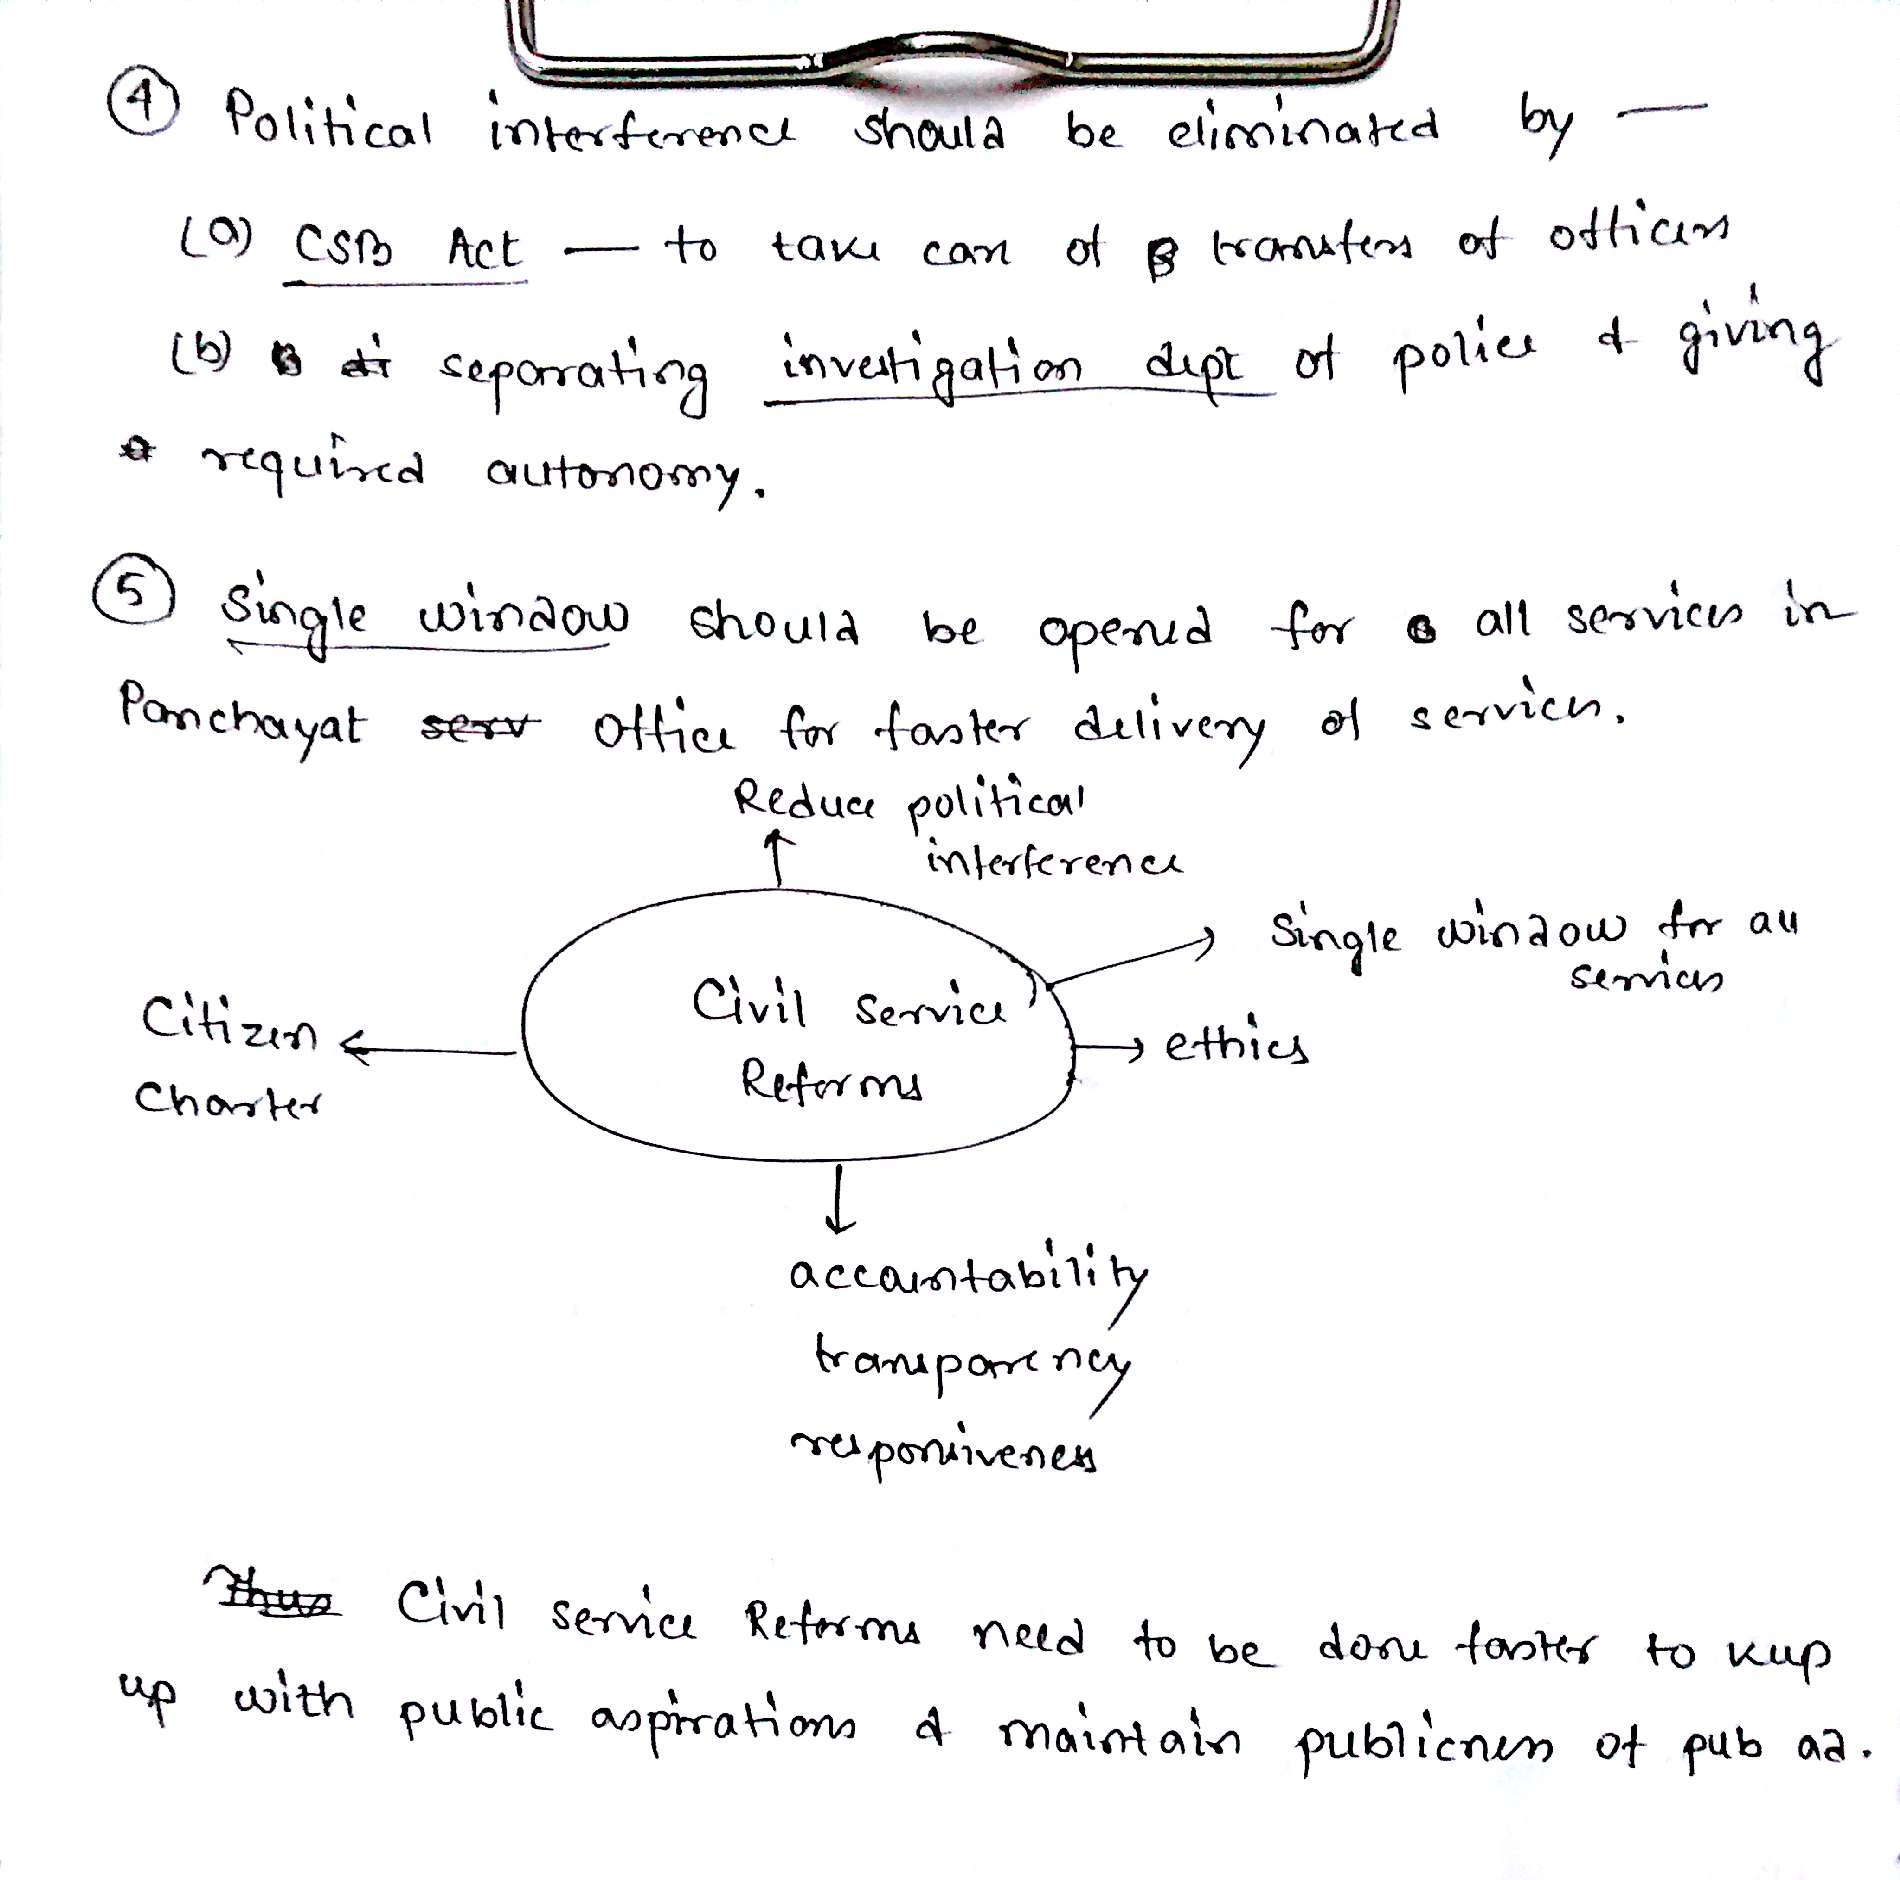 ④ Political interference should be eliminated by —
(a) CSB Act — to take care of transfers of officers
(b) separating investigation dept of police & giving
required autonomy.
⑤ Single window should be opened for all services in
Panchayat serv office for faster delivery of services.
Reduce political
interference
Single window for all
services
Citizen
Charter
Civil Service
Reforms
ethics
accountability
transparency
responsiveness
Thus Civil service Reforms need to be done faster to keep
up with public aspirations & maintain publicness of pub ad.